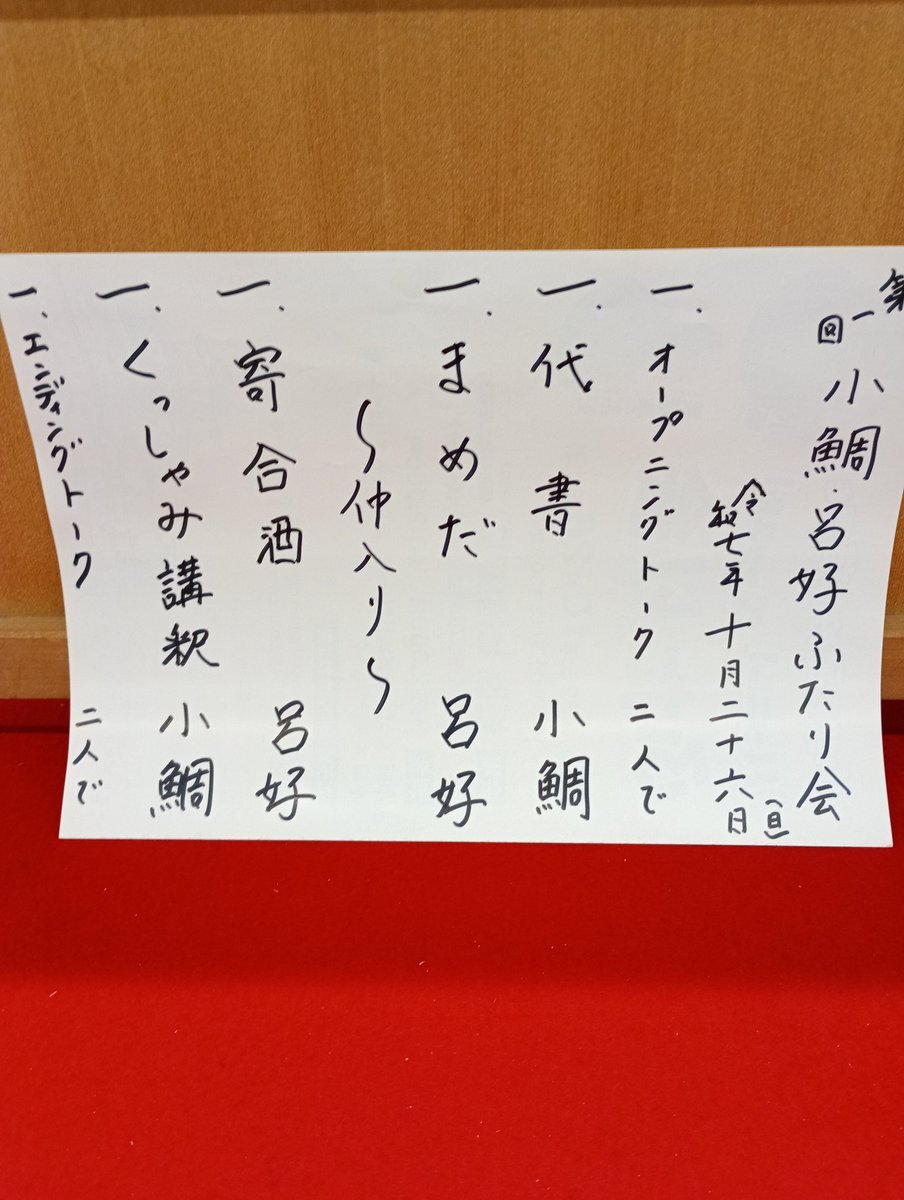 第一回 小鯛・呂好ふたり会
令和七年十月二十六日(日)
一、オープニングトーク 二人で
一、代書 小鯛
一、まめだ 呂好
〜仲入り〜
一、寄合酒 呂好
一、くっしゃみ講釈 小鯛
一、エンディングトーク 二人で